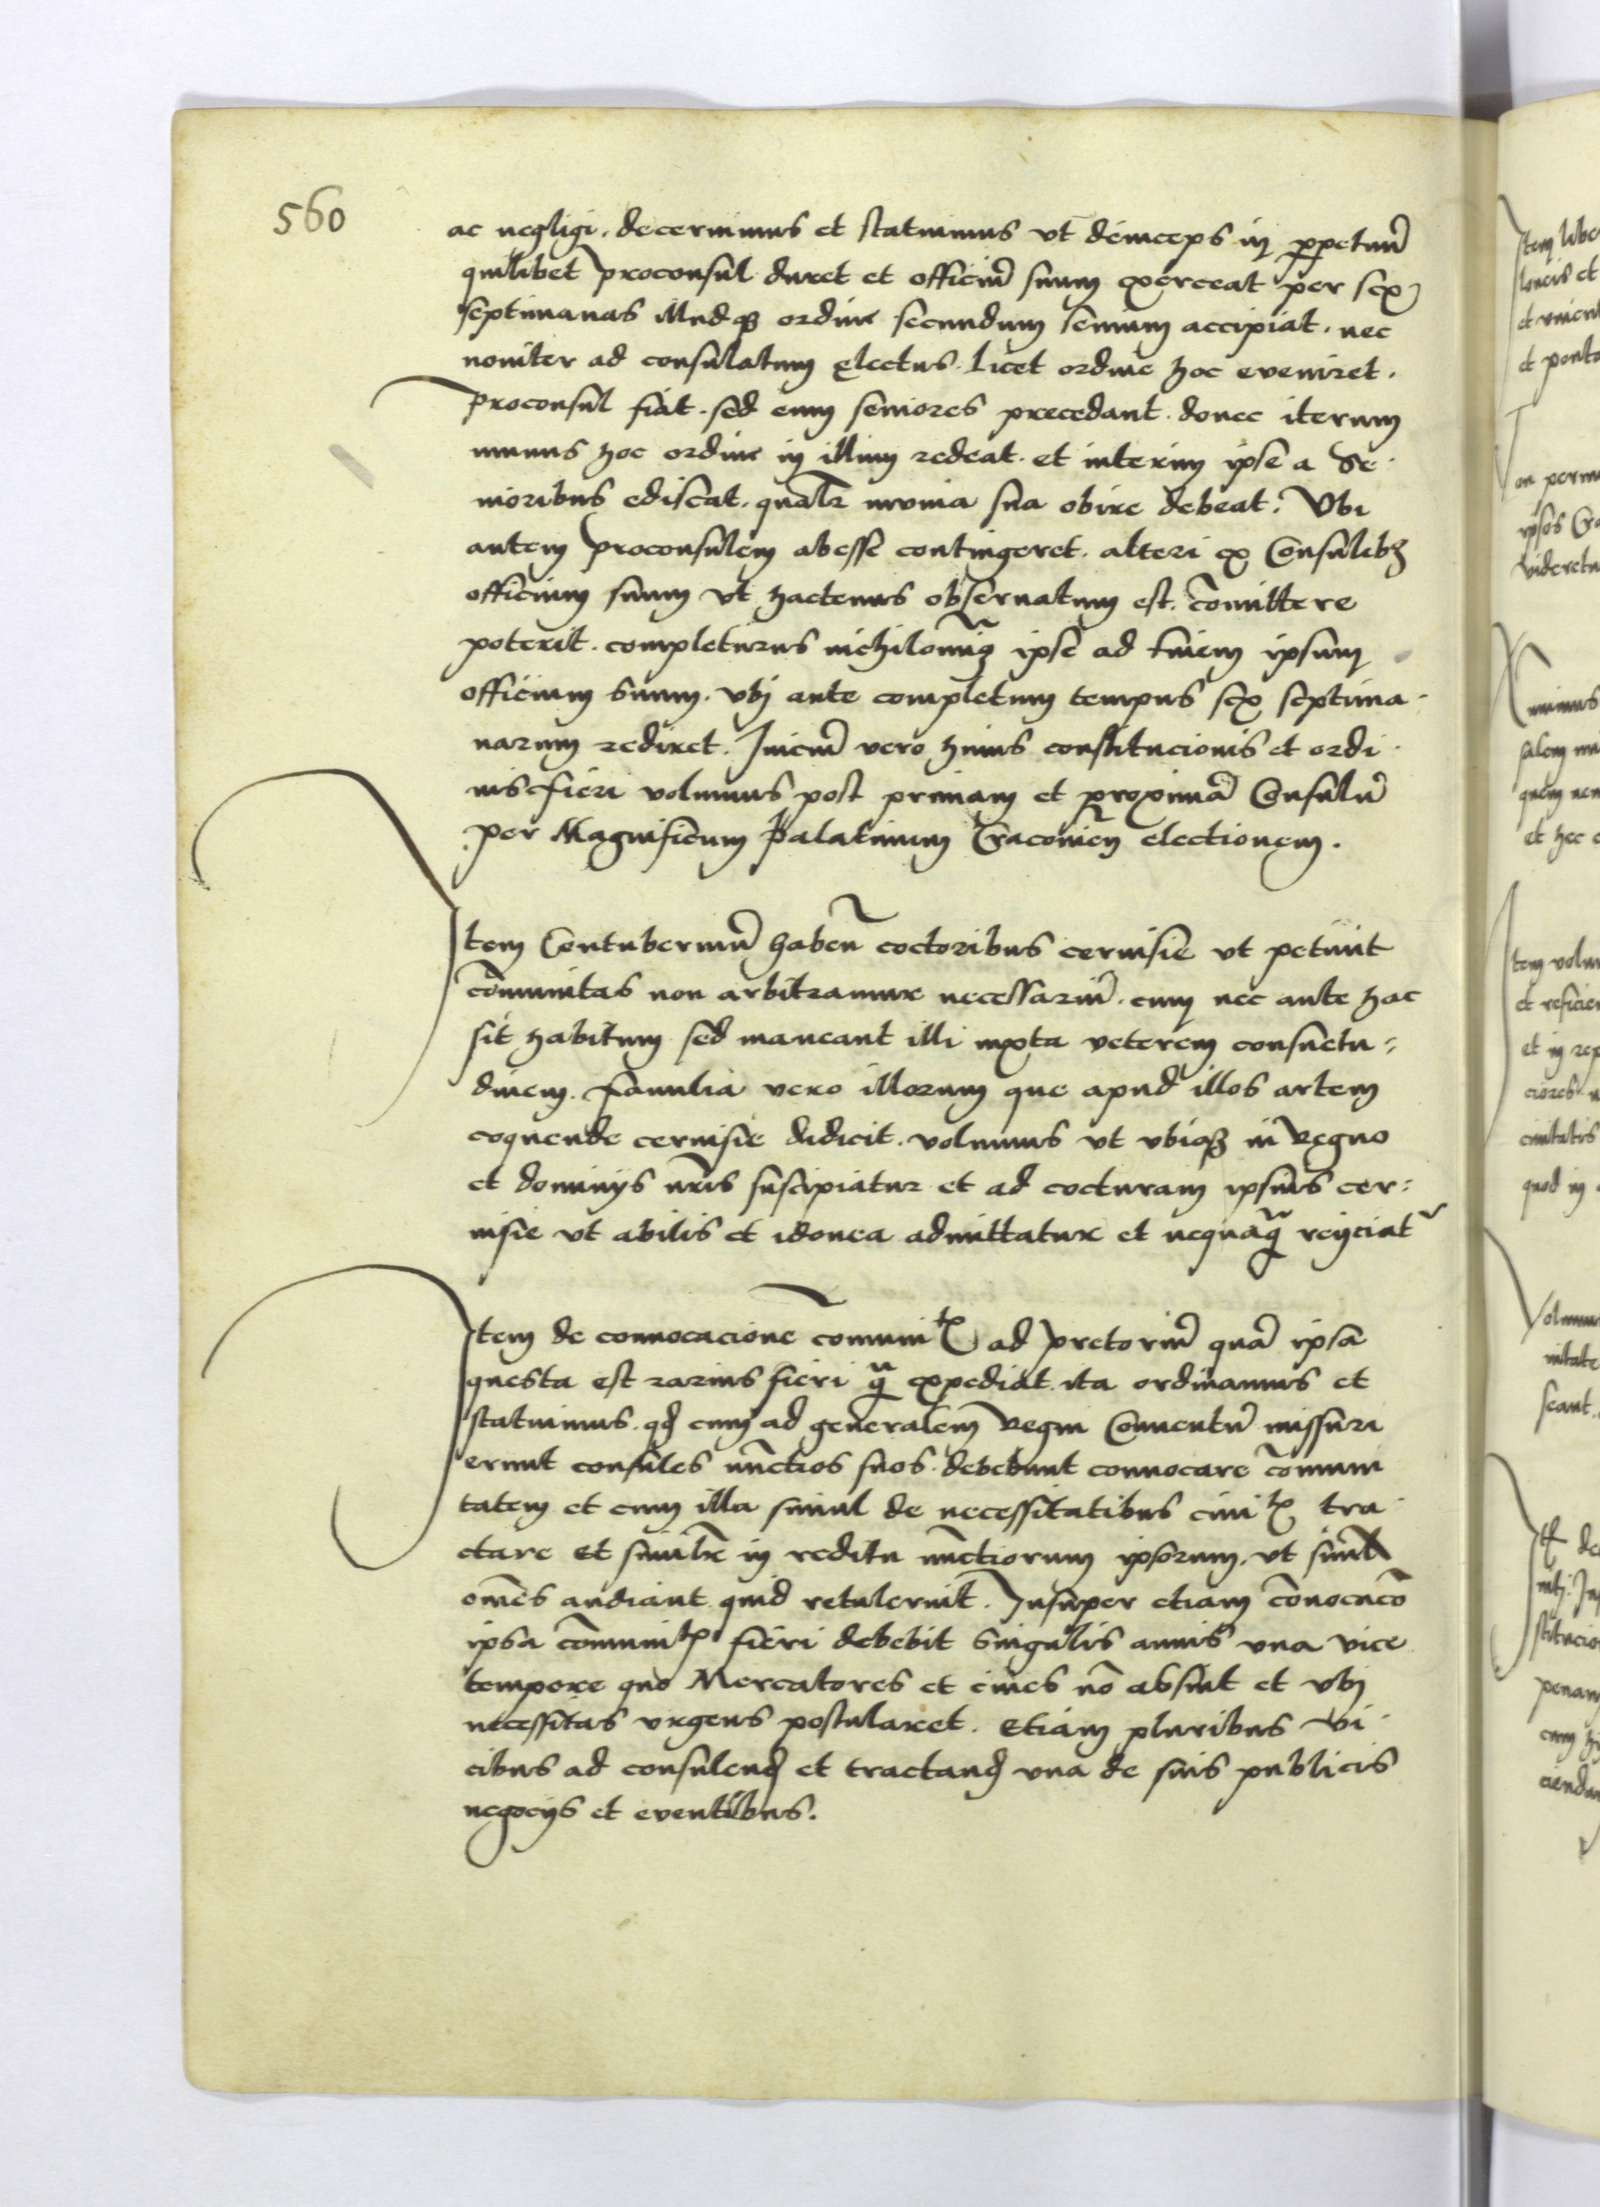 560
ac negligi. decernimus et statuimus vt deinceps in ꝑpetuũ
quilibet proconsul duret et officiũ suum exerceat per sex
septimanas illudqꝫ ordine secundum senium accipiat. nec
noniter ad consulatum electus. licet ordine hoc eveniret.
proconsul fiat. sed eum seniores precedant. donec iterum
munus hoc ordine in illum redeat. et interim ipse a Se-
nioribus ediscat. qualr̃ munia sua obire debeat. Vbi
autem proconsulem abesse contingeret. alteri ex Consulibꝫ
officium suum vt hactenus obseruatum est. cõmittere
poterit. completurus nichilominꝰ ipse ad finem ipsum
officium suum. vbi ante completum tempus sex septima-
narum rediret. Iniciũ vero huius constitucionis et ordi-
nis fieri volumus post primam et proximã Consulũ
per Magnificum Palatinum Cracouieñ electionem.
Item Contuberniũ habeñ coctoribus ceruisie vt petiuit
cõmunitas non arbitramur necessariũ. cum nec ante hac
sit habitum sed maneant illi iuxta veterem consuetu-
dinem. Familia vero illorum que apud illos artem
coquende ceruisie didicit. volumus vt vbiqꝫ in Regno
et dominijs nr̃is suscipiatur et ad cocturam ipsius cer-
uisie vt abilis et idonea admittatur et nequaq̃ reijciat᷑
Item de conuocacione comunitꝭ ad pretoriũ quã ipsa
questa est rarius fieri q̃ expediat. ita ordinamus et
statuimus. qđ cum ad generalem Regni Conuentũ missuri
erunt consules nũctios suos. debebunt conuocare cõmuni
tatem et cum illa simul de necessitatibus ciuitꝭ tra-
ctare et similr̃ in reditu nũctiorum ipsorum. vt simul
om̃es audiant quid retulerint. Insuper etiam cõuocacõ
ipsa cõmunitꝭ fieri debebit singulis annis vna vice
tempore quo Mercatores et ciues nõ absint et vbi
necessitas vrgens postularet. etiam pluribus vi-
cibus ad consulenđ et tractanđ vna de suis publicis
negocijs et euentibus.